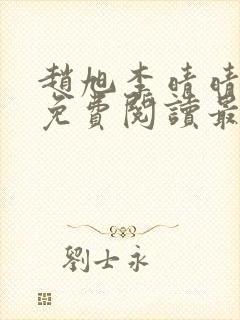 趙旭李晴晴
免費閱讀最
劉士永